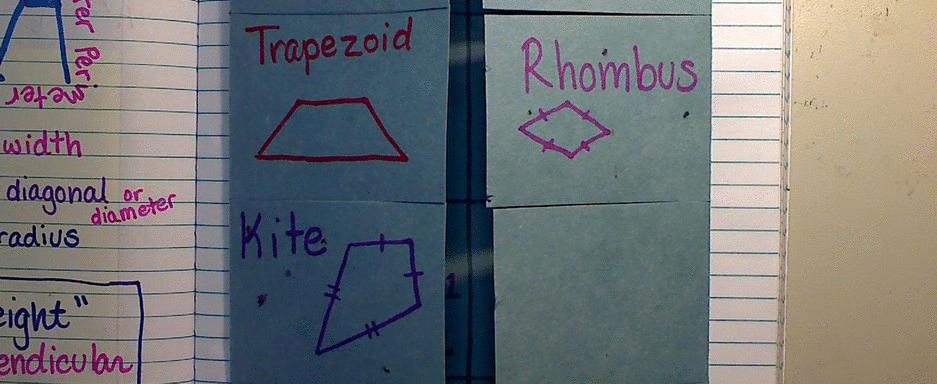 ter Per
meter
width
diagonal or
diameter
radius
eight"
endicular
Trapezoid
Kite
Rhombus